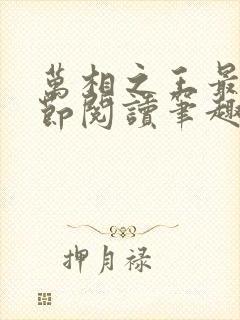 萬相之王最
節閱讀筆趣
押月禄